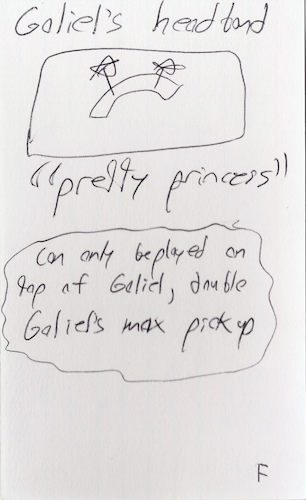 Galiel's headband
"pretty princess"
Can only be played on
top of Galiel, double
Galiel's max pickup
F